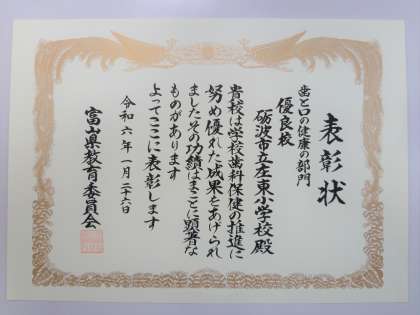 表彰状
歯と口の健康の部門
優良校
砺波市立庄東小学校殿
貴校は学校歯科保健の推進に
努め優れた成果をあげられ
ましたその功績はまことに顕著な
ものがあります
よってここに表彰します
令和六年一月二十六日
富山県教育委員会